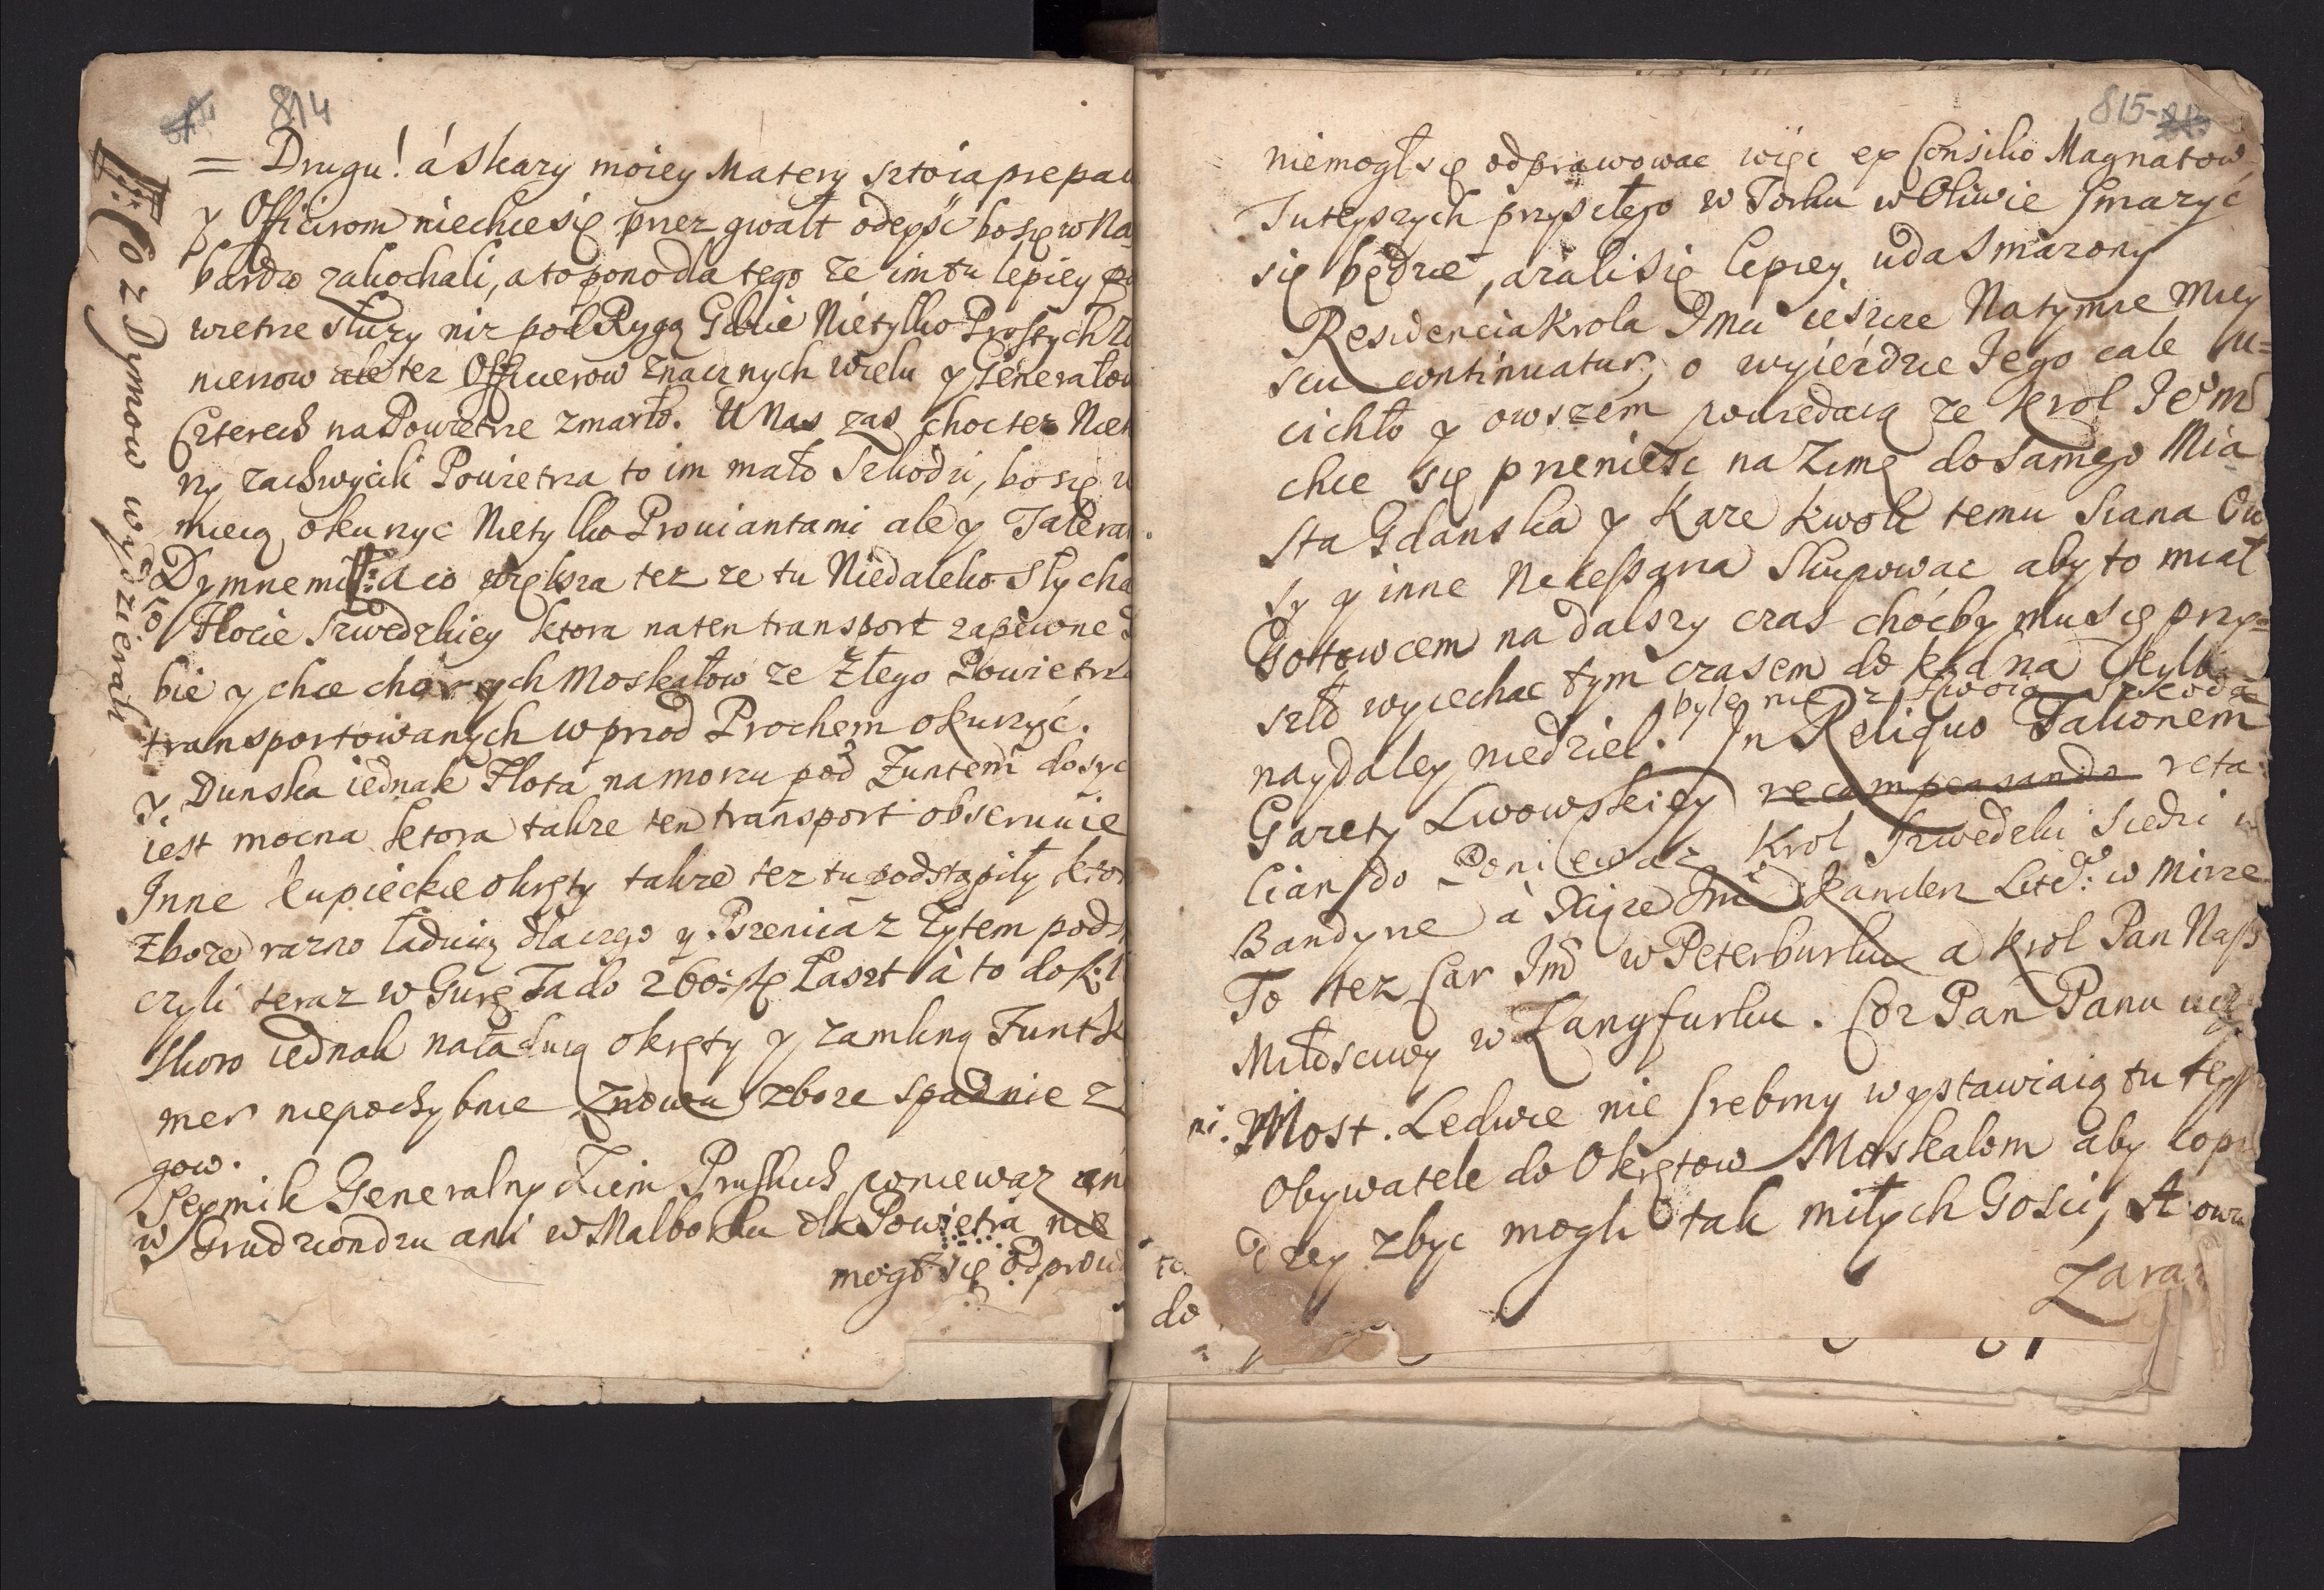 814
= Drugu! á Skazy moiey Matery sztoia prepau
y Officirom niechce się przez gwałt odeyść bo się w Na
bardzo zakochali, a to pono dla tego ze im tu lepiey po
wietrze służy niz pod Rygą Gdzie Nietylko Prostych Zo
nierzow ale tez Officierow znacznych wielu y Generałow
Czterech na Powietrze zmarło. U Nas zas choc tez Niek
rzy zachwycili Powietrza to im mało Szkodzi, bo się u
mieią okurzyc Nietylko Prowiantami ale y Talera
Dymnemi a co większa tez ze tu Niedaleko Słycha
o Flocie Szwedzkiey ktora na ten transport zapewne
bie y chce chorych Moskałow ze Złego Powietrza
transportowanych wprzod Prochem okurzyć.
y Dunska iednak Flota na morzu pod Zuntem dosyc
iest mocna ktora takze ten transport obserwuie
Inne kupieckie okręty takze tez tu podstąpiły ktor
zboze razno ładuią dlaczego y Pszenica z Zytem pods
czyli teraz w Gurę Ta do 260: Łaszt à to do
Skoro iednak naładuią okręty y zamkną Funtk
mer niepochybnie znowu zboze spadnie z
gow.
Seymik Generalny Ziem Pruskich poniewaz an
w Grudziondzu ani w Malborku dla Powietra nie
mogł się odprow
Co z Dymow wydzierali
815
niemogł się odprawowac więc ex Consilio Magnatow
Tuteyszych przyszłego w Torku w Oliwie smazyć
się będzie, azali się lepiey uda Smazony
Residencia Krola Jmci ieszcze Na tymze Miey
scu continuatur, o wyieździe Jego cale u=
cichło y owszem powiedaią ze Krol Jemć
chce się przenieść na Zimę do Samego Mia
sta Gdanska y Kaze kwoli temu Siana Ow
sy y inne Necessaria Skupowac aby to miał
Gotowcem na dalszy czas choćby mu się przy=
szło wyiechac tym czasem do kąd na kylka
naydaley niedziel. byle nie z swoią szkodą
In Reliquo Talionem
Gazety Lwowskiey recompensando reta
liando Poniewaz Krol Szwedzki Siedzi w
Bandyrze à Xiąze Jmć Kanclerz Litt: w Mirze
To tez Car Jmć w Peterburku a Krol Pan Nasz
Miłosciwy w Langfurku. Coz Pan Panu uczy
ni. Most. Ledwie nie srebrny wystawiaią tu teysi
Obywatele do Okrętow Moskalom aby copr
ędzey zbyc mogli tak miłych Gosci, A owu
Zaraz
do